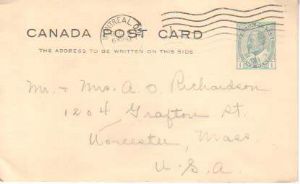 MONTREAL
CANADA POST CARD
THE ADDRESS TO BE WRITTEN ON THIS SIDE
Mr. & Mrs. A. O. Richardson
1204 Grafton St.
Worcester, Mass
U.S.A.